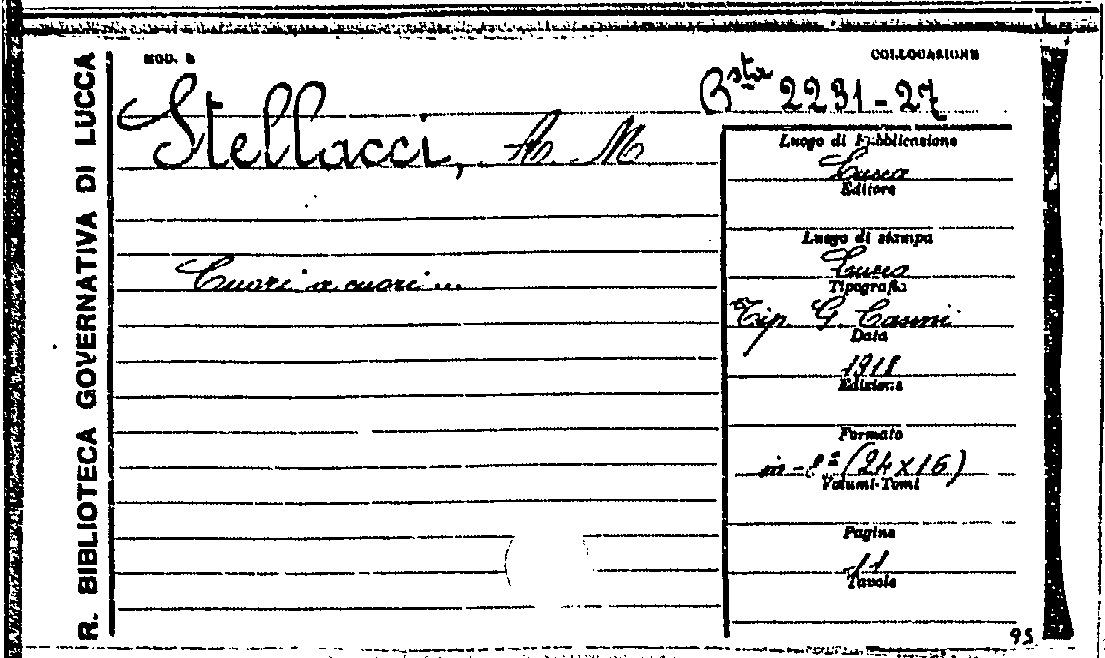 R. BIBLIOTECA GOVERNATIVA DI LUCCA
MOD. B
COLLOCAZIONE
Bsta 2231-27
Stellacci, A M
Cuori a cuori...
Luogo di Pubblicazione
Lucca
Editore
Luogo di stampa
Lucca
Tipografia
Tip. G
Data
1918
Edizione
Formato
in-8º (24x16)
Volumi-Tomi
Pagine
11
Tavole
95